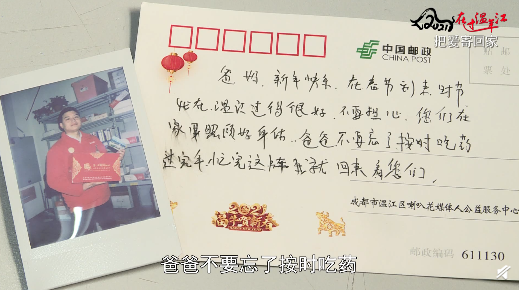 2021
在温江
把爱寄回家
中国邮政
CHINA POST
爸妈,新年快乐,在春节到来时节
我在温江过得很好,不要担心,您们在
家里照顾好身体,爸爸不要忘了按时吃药
过完年忙完这阵我就回来看您们。
2021
成都市温江区喇叭花媒体人公益服务中心
邮政编码 611130
爸爸不要忘了按时吃药